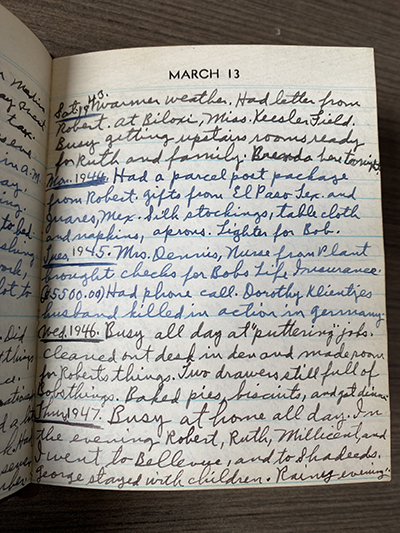 n Madison
ay sent
tax.
sent
in a.m.
ay.
to bed.
shing
work,
lot to
Did
things
ed a
seven
MARCH 13
Sat. 1943. Warmer weather. Had letter from
Robert. at Biloxi, Miss. Keesler Field.
Busy getting upstairs rooms ready
for Ruth and family. Brenda here tonight
Mon. 1944. Had a parcel post package
from Robert. gifts from El Paso Tex. and
Juares, Mex. Silk stockings, table cloth
and napkins, aprons. Lighter for Bob.
Tues. 1945. Mrs. Dennis, Nurse from Plant
brought checks for Bobs Life Insurance.
($5500.00) Had phone call. Dorothy Klientjes
husband killed in action in germany.
Wed. 1946. Busy all day at "puttering" jobs.
Cleaned out desk in den and made room
for Roberts things. Two drawers still full of
Bobs things. Baked pies, biscuits, and got dinner
Thur. 1947. Busy at home all day. In
the evening Robert, Ruth, Millicent, and
I went to Bellevue, and to Shadeeds.
George stayed with children. Rainey evening.